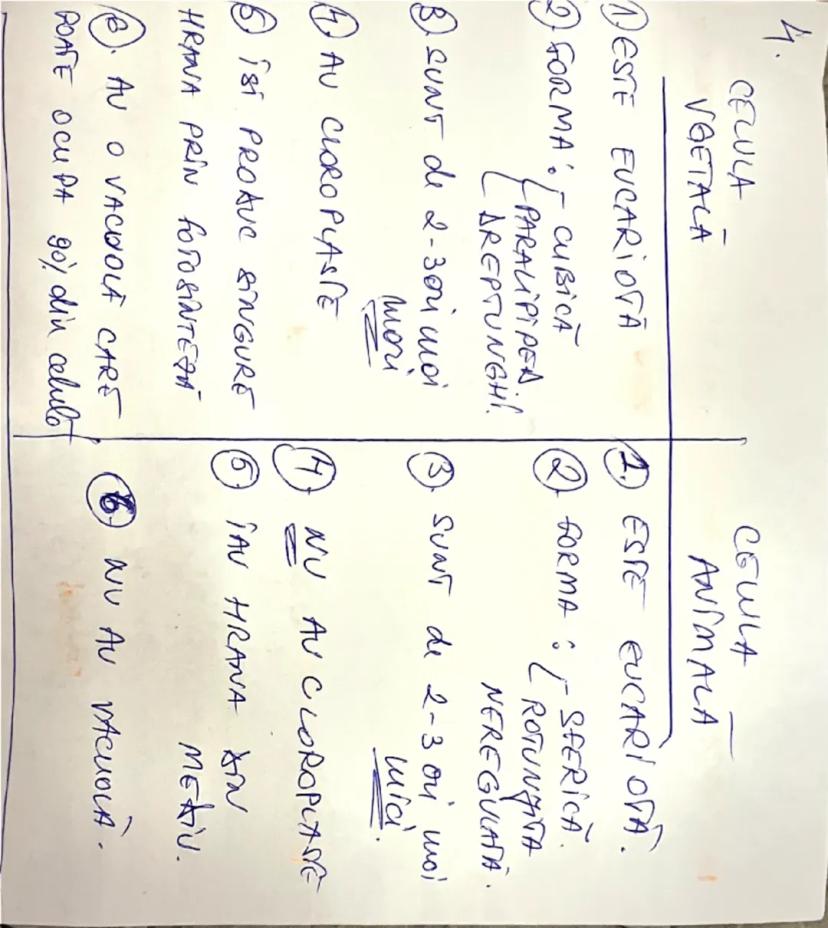 4.
CELULA
VGETALĂ
1) ESTE EUCARIOTĂ
2) FORMA: - CUBICĂ
PARALIPIPED
DREPTUNGHI.
3) SUNT de 2-3 ori mai
mari
4) AU CLOROPLASTE
5) ÎȘI PRODUC SINGURE
HRANA PRIN FOTOSINTEZĂ
6. AU O VACUOLĂ CARE
POATE OCUPA 90% din celulă
CELULA
ANIMALĂ
1. ESTE EUCARIOTĂ.
2. FORMA: - SFERICĂ.
ROTUNJITĂ
NEREGULATĂ.
3. SUNT de 2-3 ori mai
mici.
4. NU AU CLOROPLASTE
5 IAU HRANA DIN
MEDIU.
6. NU AU VACUOLĂ.